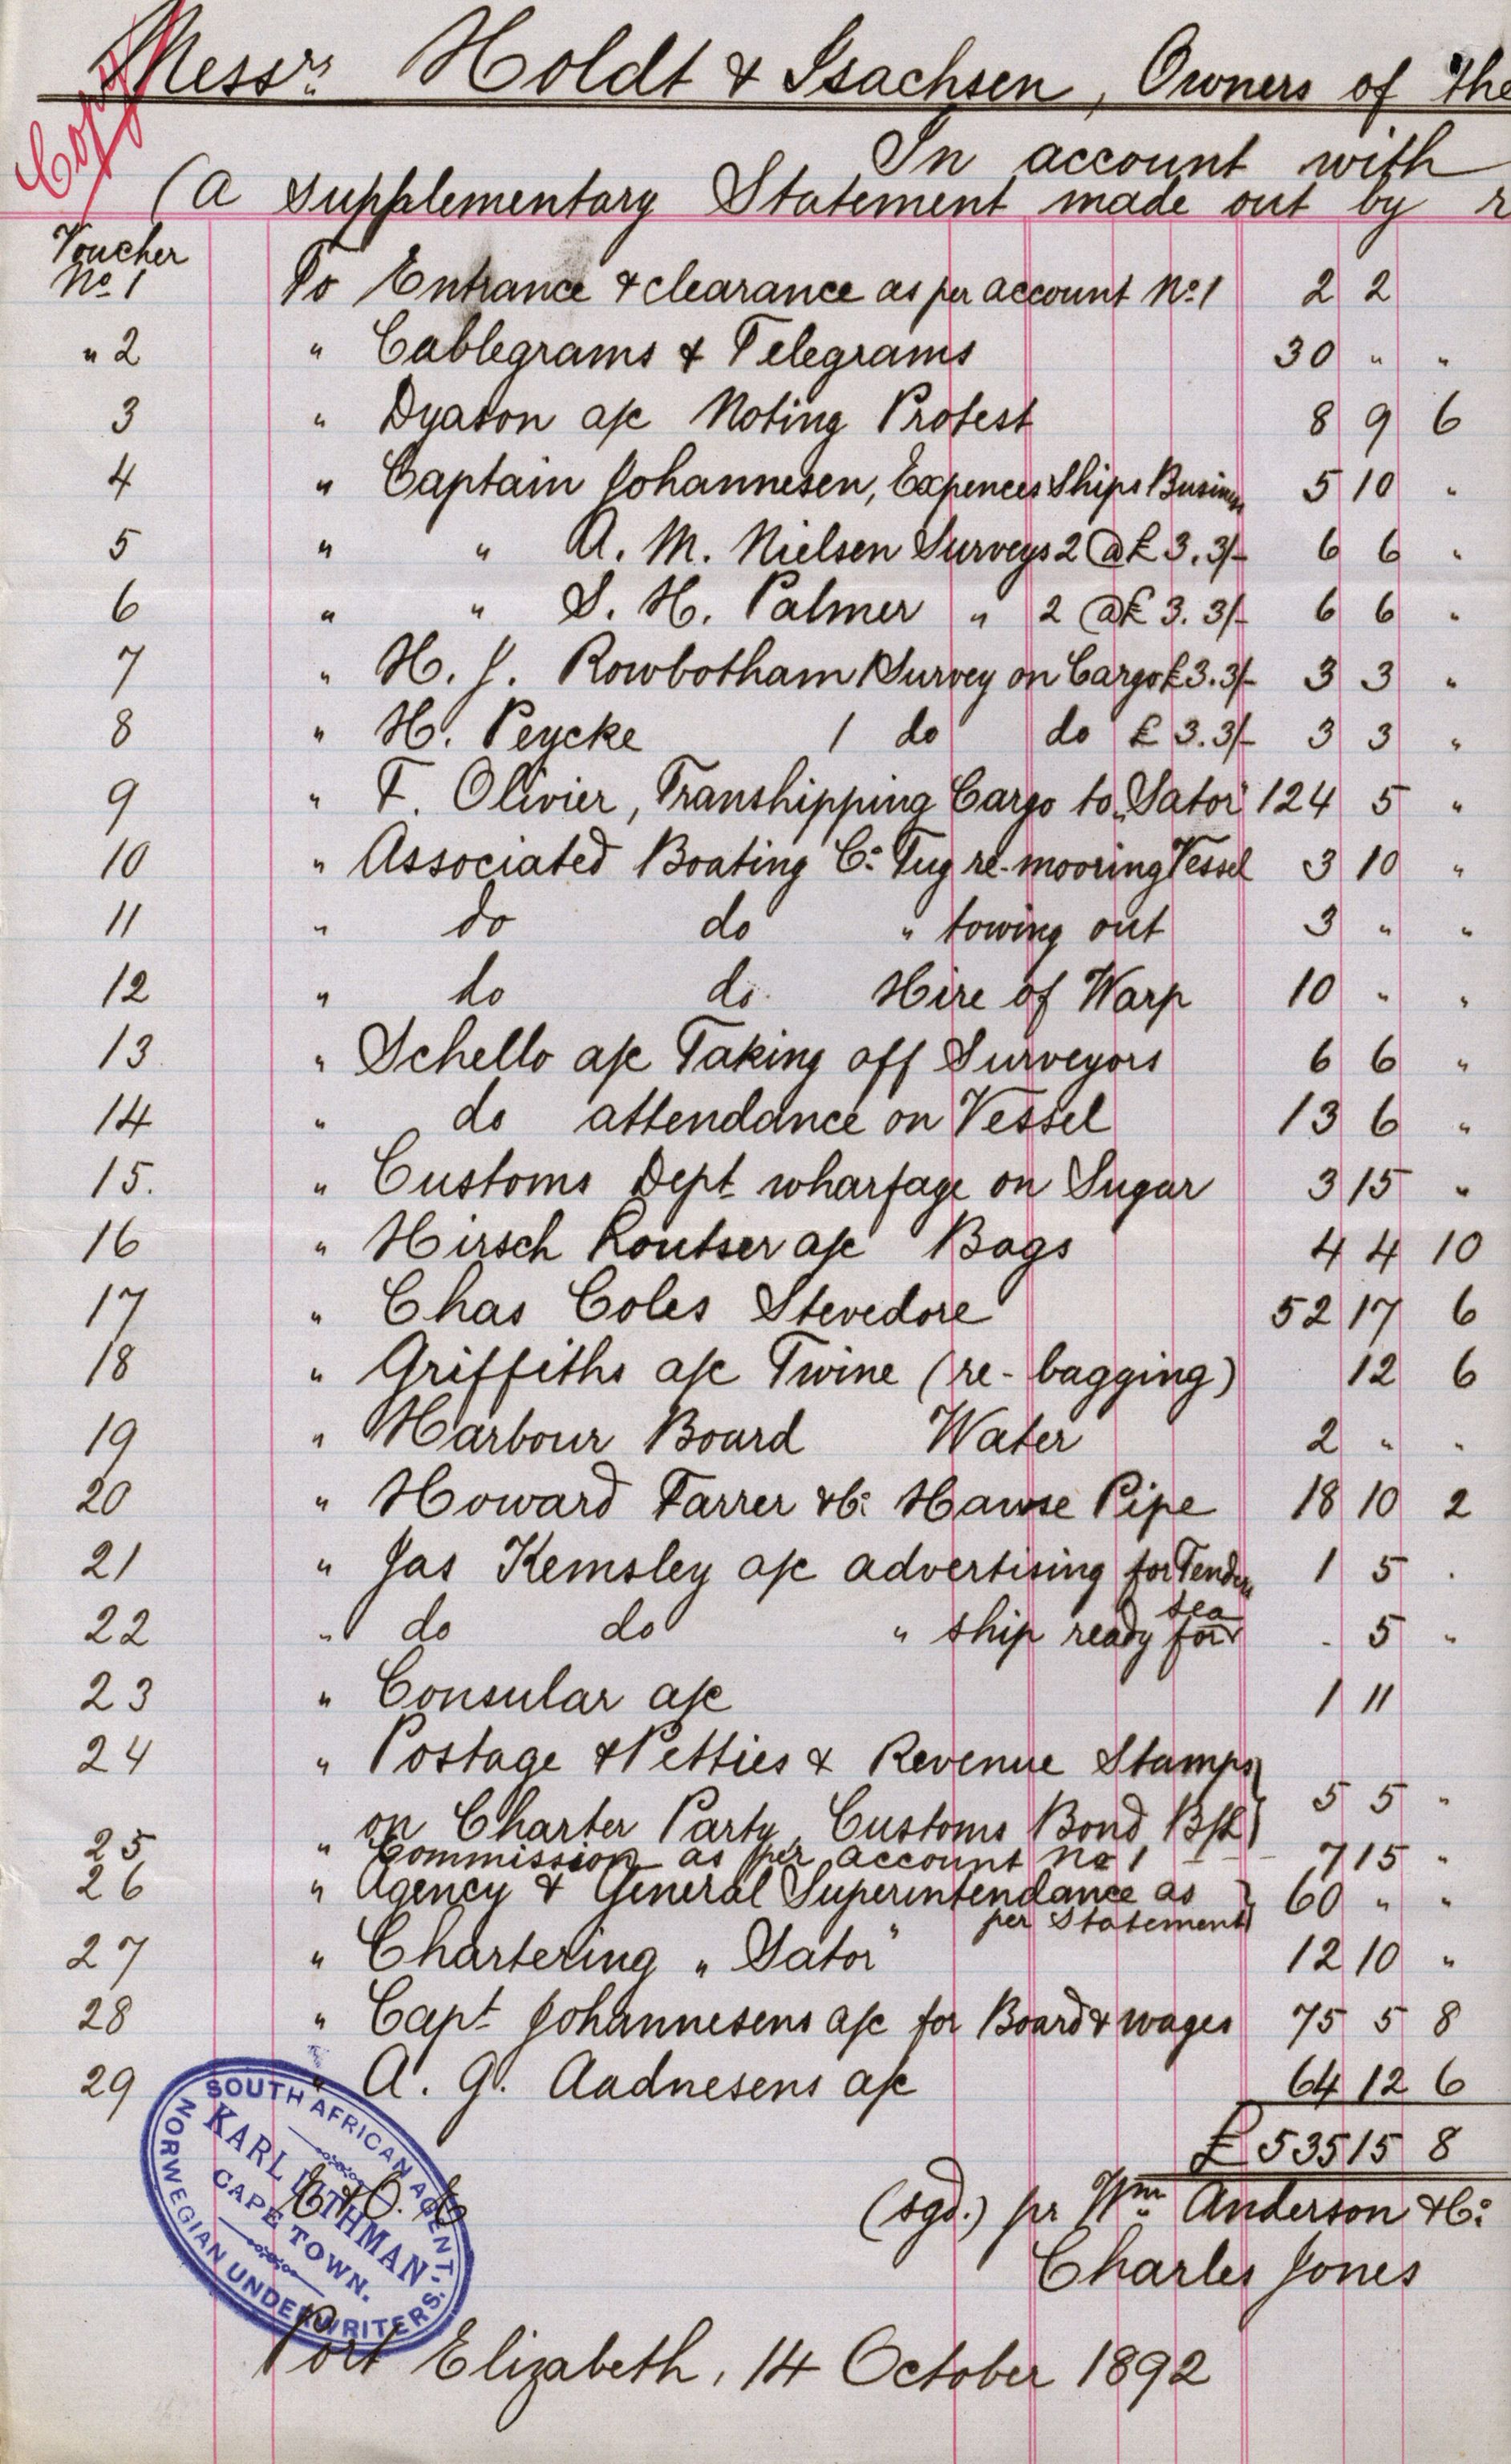 Copy
Messrs Holdt & Isachsen, Owners of the
In account with
(a Supplementary Statement made out by
Voucher
No. 1 To Entrance & clearance as per account No. 1 2 2
" 2 " Cablegrams & Telegrams 30 " "
3 " Dyason a/c Noting Protest 8 9 6
4 " Captain Johannesen, Expences Ships Business 5 10 "
5 " " A. M. Nielsen Surveys 2 @ £3.3/- 6 6 "
6 " " S. H. Palmer " 2 @ £3.3/- 6 6 "
7 " H. J. Rowbotham 1 Survey on Cargo £3.3/- 3 3 "
8 " H. Peycke 1 do do £3.3/- 3 3 "
9 " F. Olivier, Transhipping Cargo to "Sator" 124 5 "
10 " Associated Boating Co. Tug re-mooring Vessel 3 10 "
11 " do do " towing out 3 " "
12 " do do. Hire of Warp 10 " "
13 " Schello a/c Taking off Surveyors 6 6 "
14 " do attendance on Vessel 13 6 "
15. " Customs Dept wharfage on Sugar 3 15 "
16 " Hirsch Loutser a/c Bags 4 4 10
17 " Chas Coles Stevedore 52 17 6
18 " Griffiths a/c Twine (re-bagging) 12 6
19 " Harbour Board Water 2 " "
20 " Howard Farrer & Co. Hawse Pipe 18 10 2
21 " Jas Kemsley a/c advertising for Tenders 1 5 .
22 " do do " ship ready for sea - 5 "
23 " Consular a/c 1 11
24 " Postage & Petties & Revenue Stamps
" on Charter Party, Customs Bond, B/L 5 5 "
25 " Commission as per account No 1 - - - 7 15 "
26 " Agency & General Superintendance as 60 " "
per Statement
27 " Chartering "Sator" 12 10 "
28 " Capt Johannesens a/c for Board & wages 75 5 8
29 " A. G. Aadnesens a/c 64 12 6
£ 535 15 8
E. & O. E.
(sgd.) pr Wm. Anderson & Co.
Charles Jones
SOUTH AFRICAN AGENT.
KARL LITHMAN
CAPE TOWN.
NORWEGIAN UNDERWRITERS.
Port Elizabeth, 14 October 1892